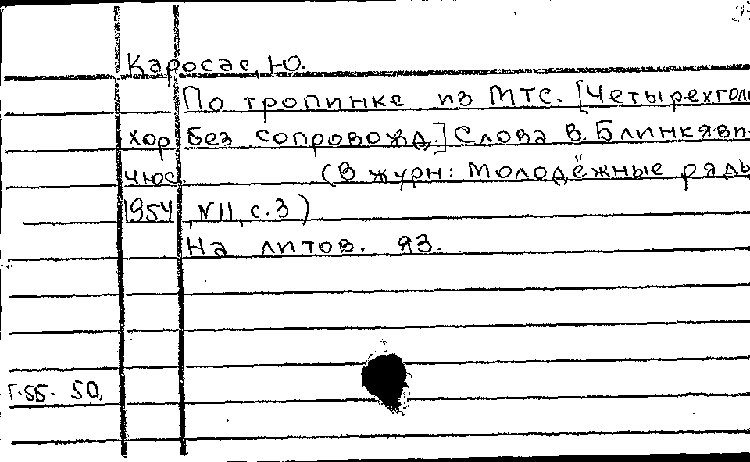 Каросас, Ю.
По тропинке из МТС. [Четырехгол
хор без сопровожд.] Слова В. Блинкяви-
чюс. (В журн: Молодёжные ряды
1954, N11, с.3)
На литов. яз.
Г.55. 50.